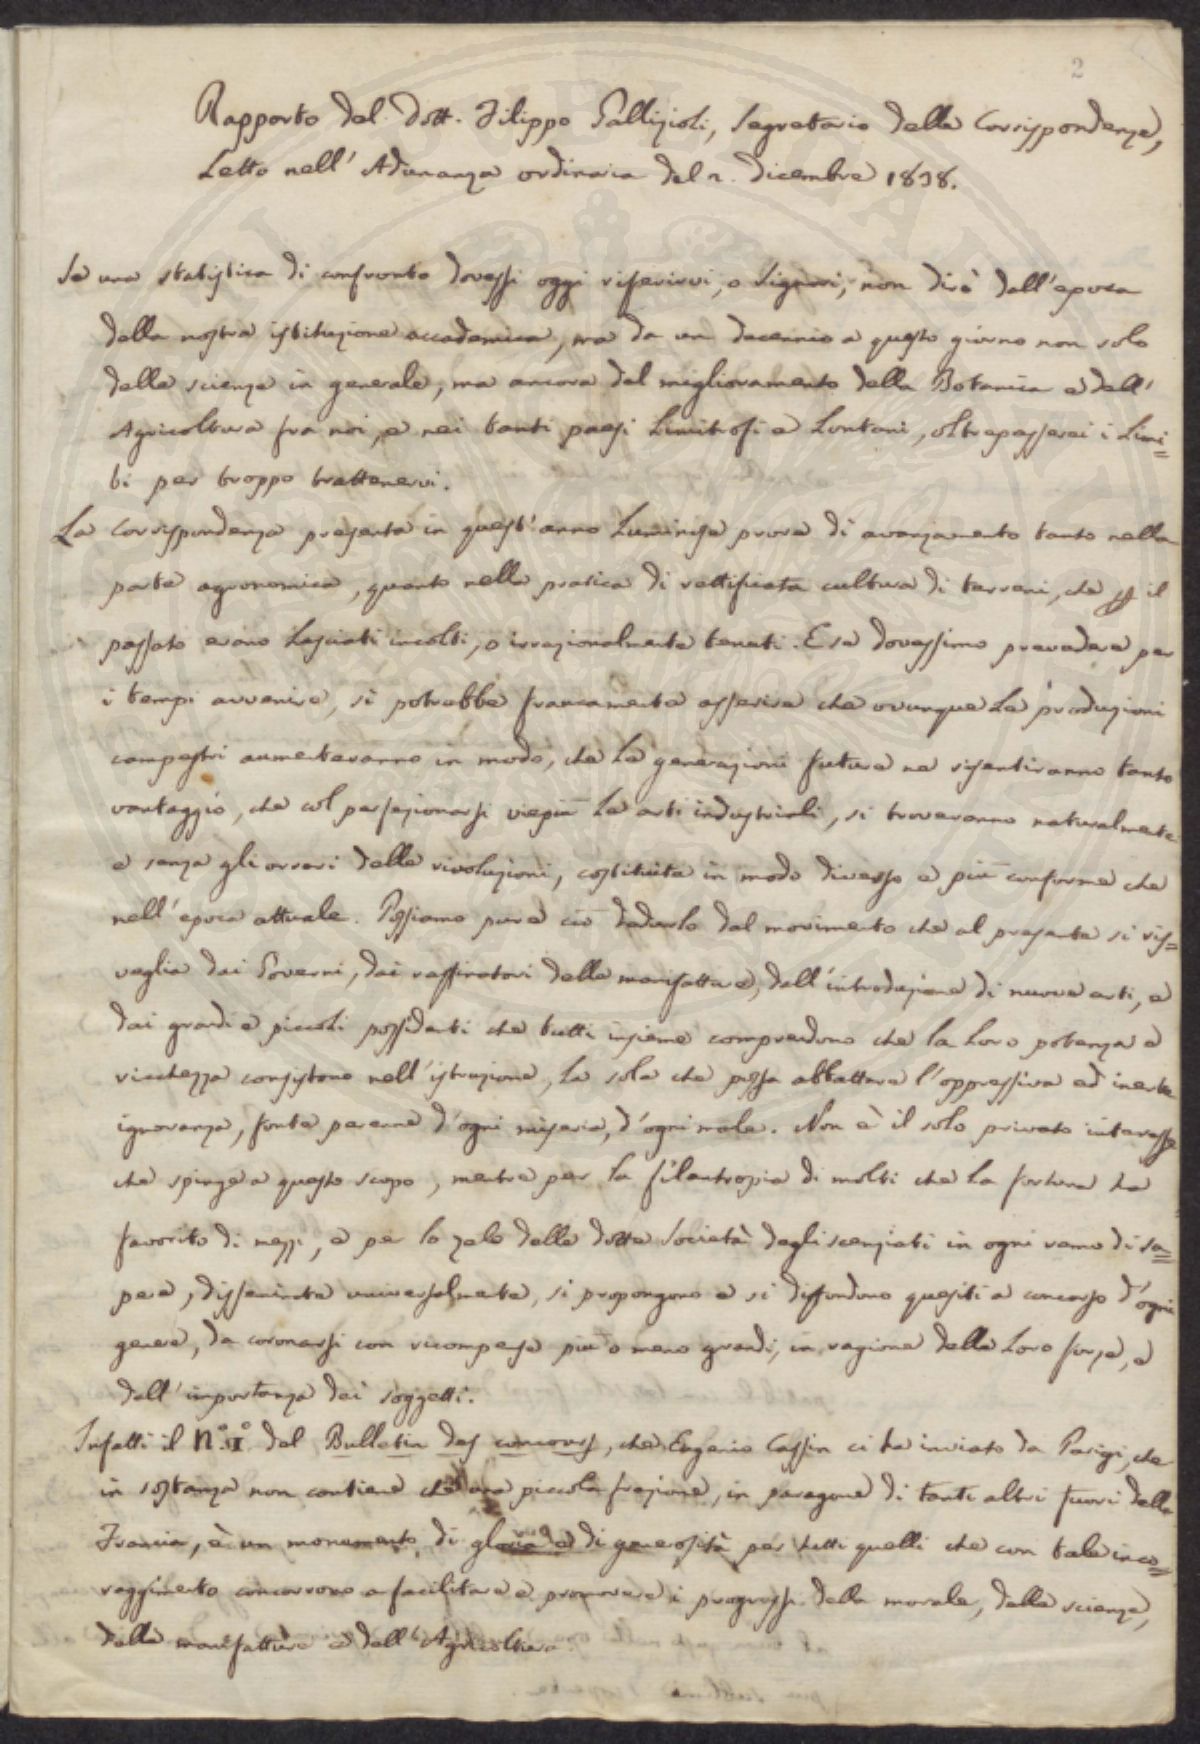 2
Rapporto del Dott. Filippo Gallizioli, Segretario della Corrispondenza,
Letto nell' Adunanza ordinaria del 2. Dicembre 1838.
Se una statistica di confronto dovessi oggi riferirvi, o Signori, non dirò dall'epoca
della nostra istituzione accademica, ma da un decennio a questo giorno non solo
delle scienze in generale, ma ancora del miglioramento della Botanica e dell'
Agricoltura fra noi, e nei tanti paesi limitrofi e Lontani, oltrepasserei i Limi=
ti per troppo trattenervi.
La Corrispondenza presenta in quest'anno Luminose prove di avanzamento tanto nella
parte agronomica, quanto nella pratica di rettificata cultura di terreni, che p il
passato erano Lasciati incolti, o irrazionalmente tenuti. E se dovessimo prevedere per
i tempi avvenire, si potrebbe francamente asserire che ovunque Le produzioni
campestri aumenteranno in modo, che Le generazioni future ne risentiranno tanto
vantaggio, che col perfezionarsi viepiù Le arti industriali, si troveranno naturalmente
e senza gli orrori delle rivoluzioni, costituite in modo diverso e più conforme che
nell'epoca attuale. Possiamo pure ciò dedurlo dal movimento che al presente si ris=
veglia dai Governi, dai raffinatori delle manifatture, dall'introduzione di nuove arti, e
dai grandi e piccoli possidenti che tutti insieme comprendono che la Loro potenza e
ricchezza consistono nell'istruzione, La sola che possa abbattere l'oppressiva ed inerte
ignoranza, fonte perenne d'ogni miseria, d'ogni male. Non è il solo privato interesse
che spinge a questo scopo, mentre per la filantropia di molti che La fortuna ha
favorito di mezzi, e per lo zelo delle dotte Società degli scenziati in ogni ramo di sa=
pere, disseminate universalmente, si propongono e si diffondono quesiti a concorso d'ogni
genere, da coronarsi con ricompense più o meno grandi, in ragione della Loro forza, e
dall'importanza dei soggetti.
Infatti il N.° I.° del Bulletin des concours, che Eugenio Cassin ci ha inviato da Parigi, che
in sostanza non contiene che una piccola frazione, in paragone di tanti altri fuori della
Francia, è un monumento di gloria e di generosità per tutti quelli che con tale inco=
raggimento concorrono a facilitare e promovere i progressi della morale, delle scienze,
delle manifatture e dell'Agricoltura.